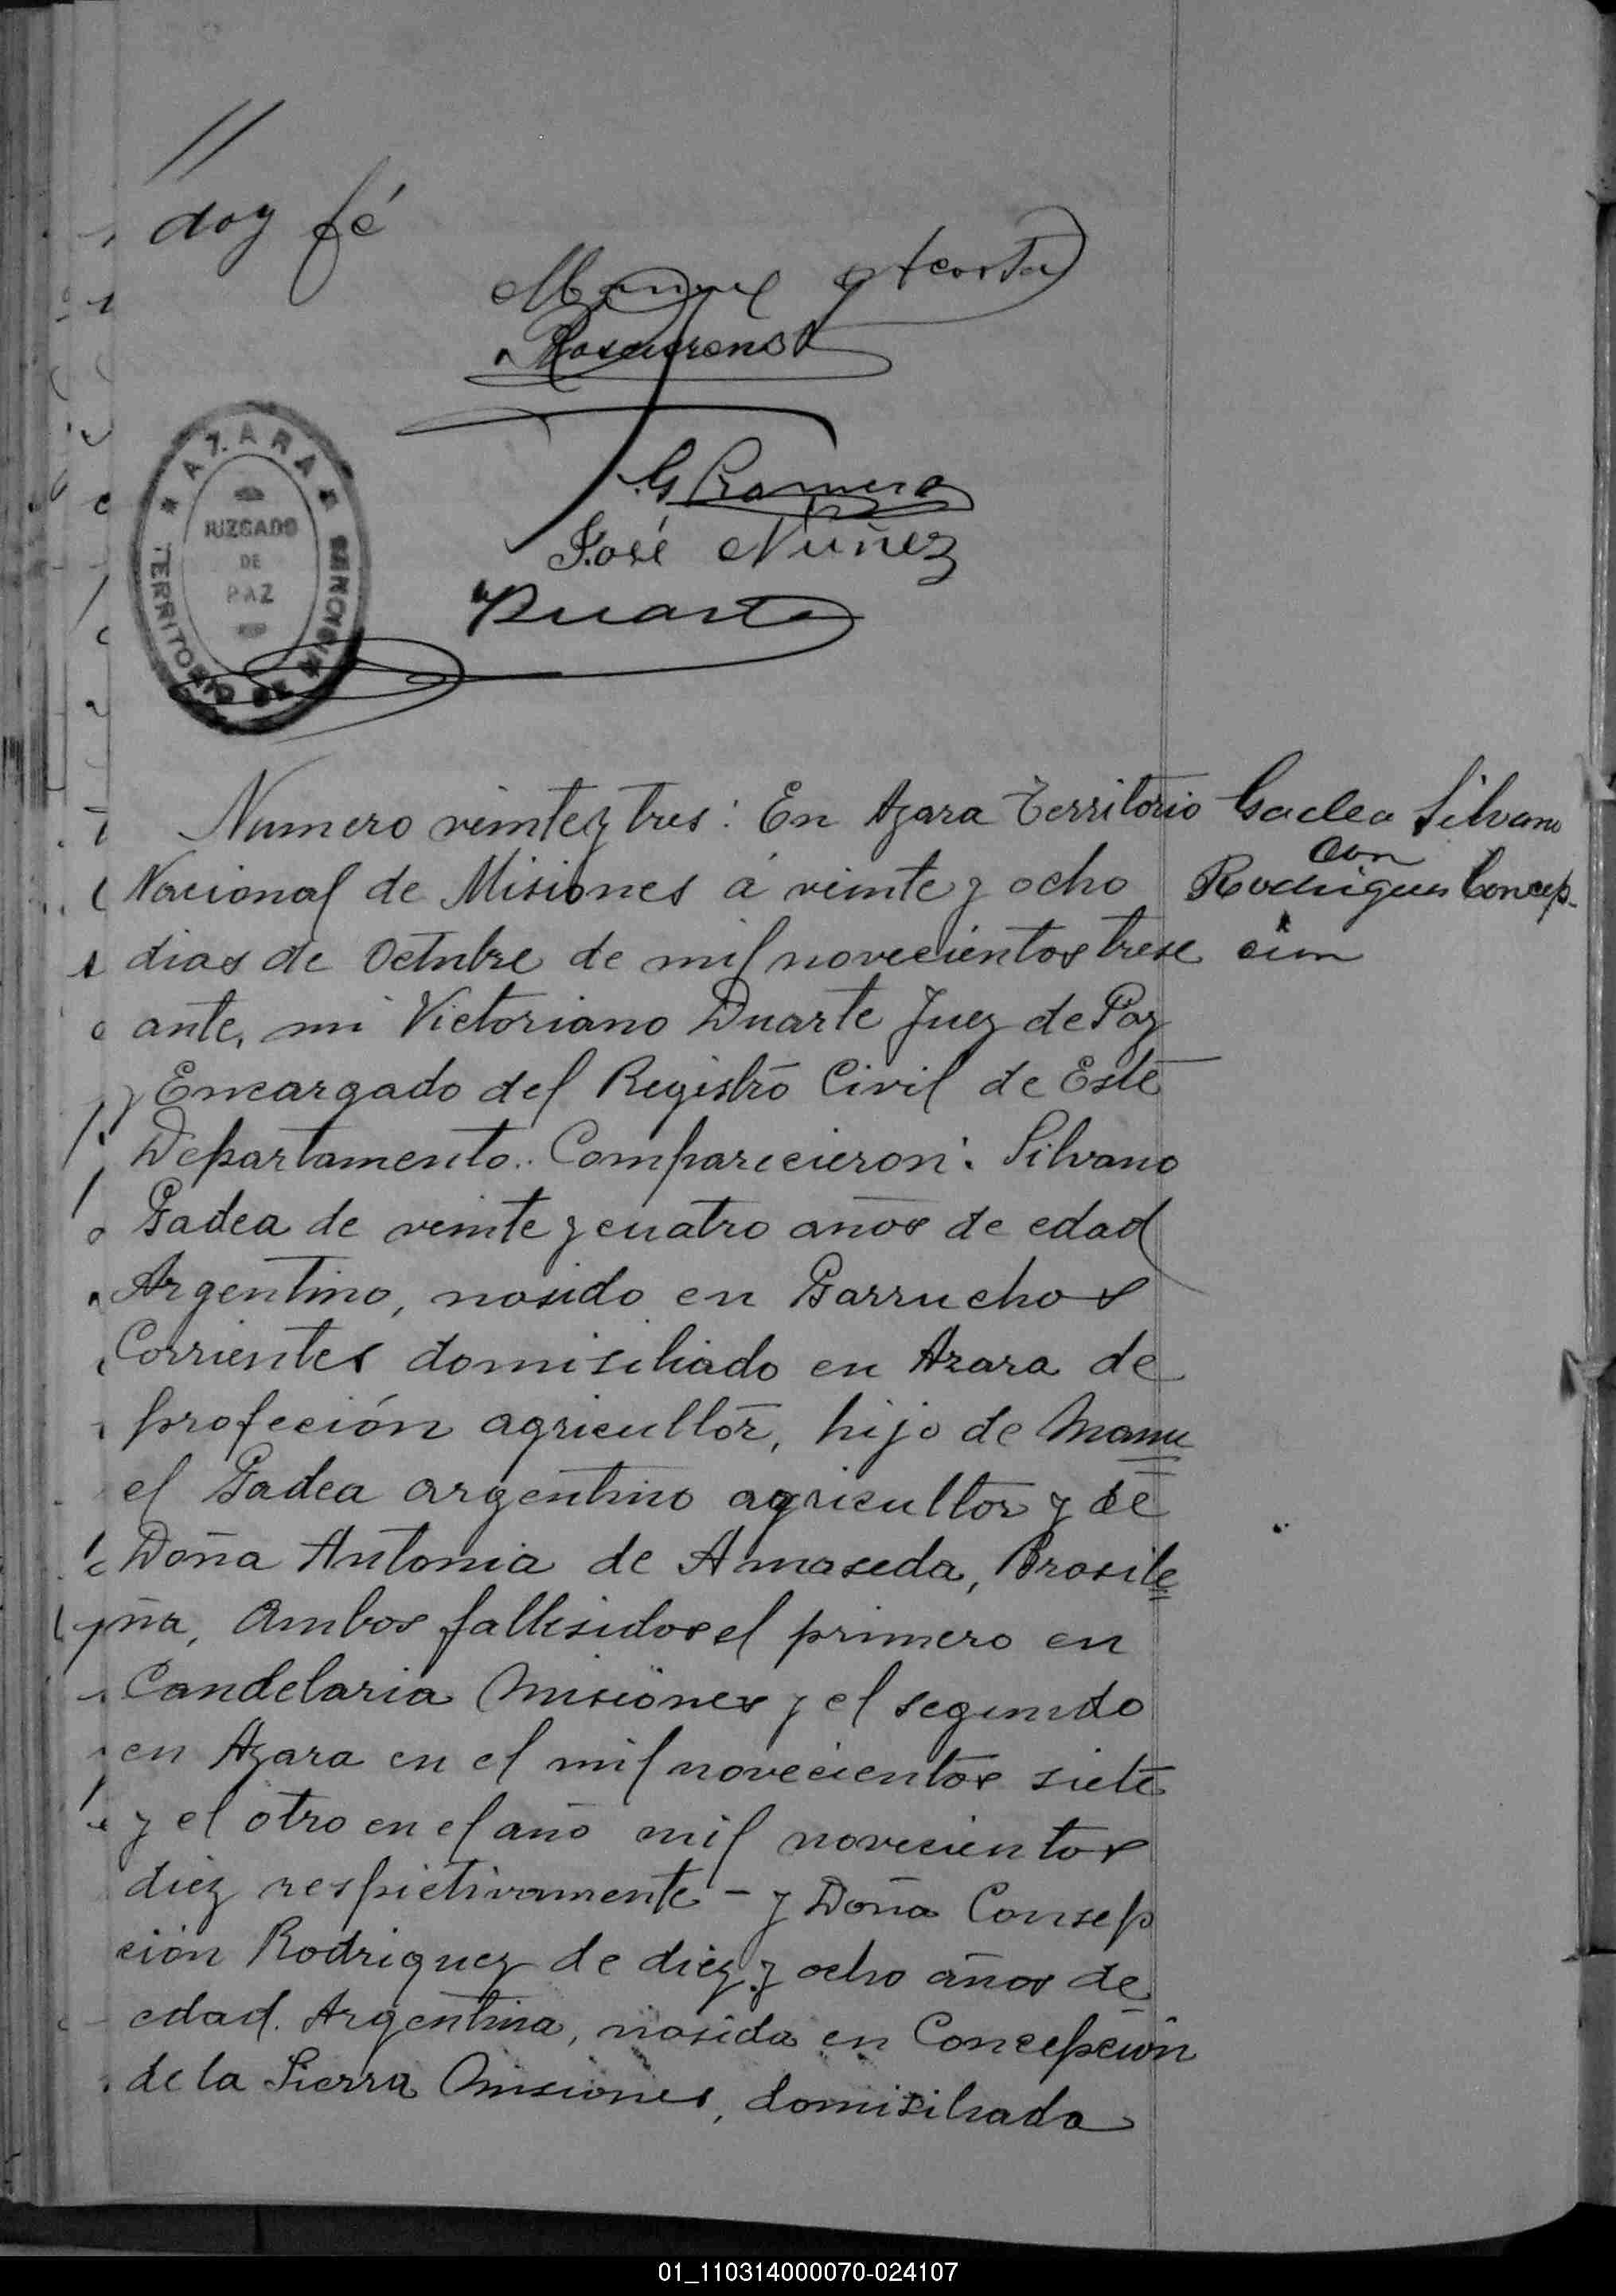 //
doy fé
Manuel Acosta
G Romero
José Nuñez
VDuarte
AZARA
JUZGADO
DE
PAZ
TERRITORIO DE MISIONES
Numero veinte y tres: En Azara Territorio
Nacional de Misiones á veinte y ocho
dias de Octubre de mil novecientos trese
ante, mi Victoriano Duarte Juez de Paz
y Encargado del Registro Civil de Este
Departamento.. Comparecieron: Silvano
Gadea de veinte y cuatro años de edad
Argentino, nasido en Garruchos
Corrientes domisiliado en Azara de
profeción agricultor, hijo de Manu
el Gadea argentino agricultor y de
Doña Antonia de Amaseda, Brasile
ña, Ambos fallesidos el primero en
Candelaria Misiones y el segundo
en Azara en el mil novecientos siete
y el otro en el año mil novecientos
diez respietivamente - y Doña Consep
ción Rodriguez de diez y ocho años de
edad. Argentina, nasida en Concepción
de la Sierra Misiones, domisiliada
Gadea Silvano
Con
Rodriguez Concep-
cion
01_110314000070-024107